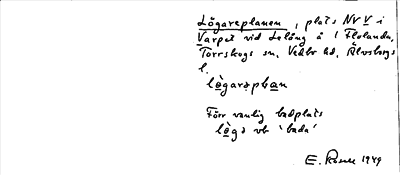 Lögareplanen, plats NV V i
Varpet vid Lelång å 1 Flolandu,
Torrskogs sn, Vedbo hd, Älvsborgs
l.
lògarəplan
Förr vanlig badplats
lògə vb 'bada'
E. Rosell 1949